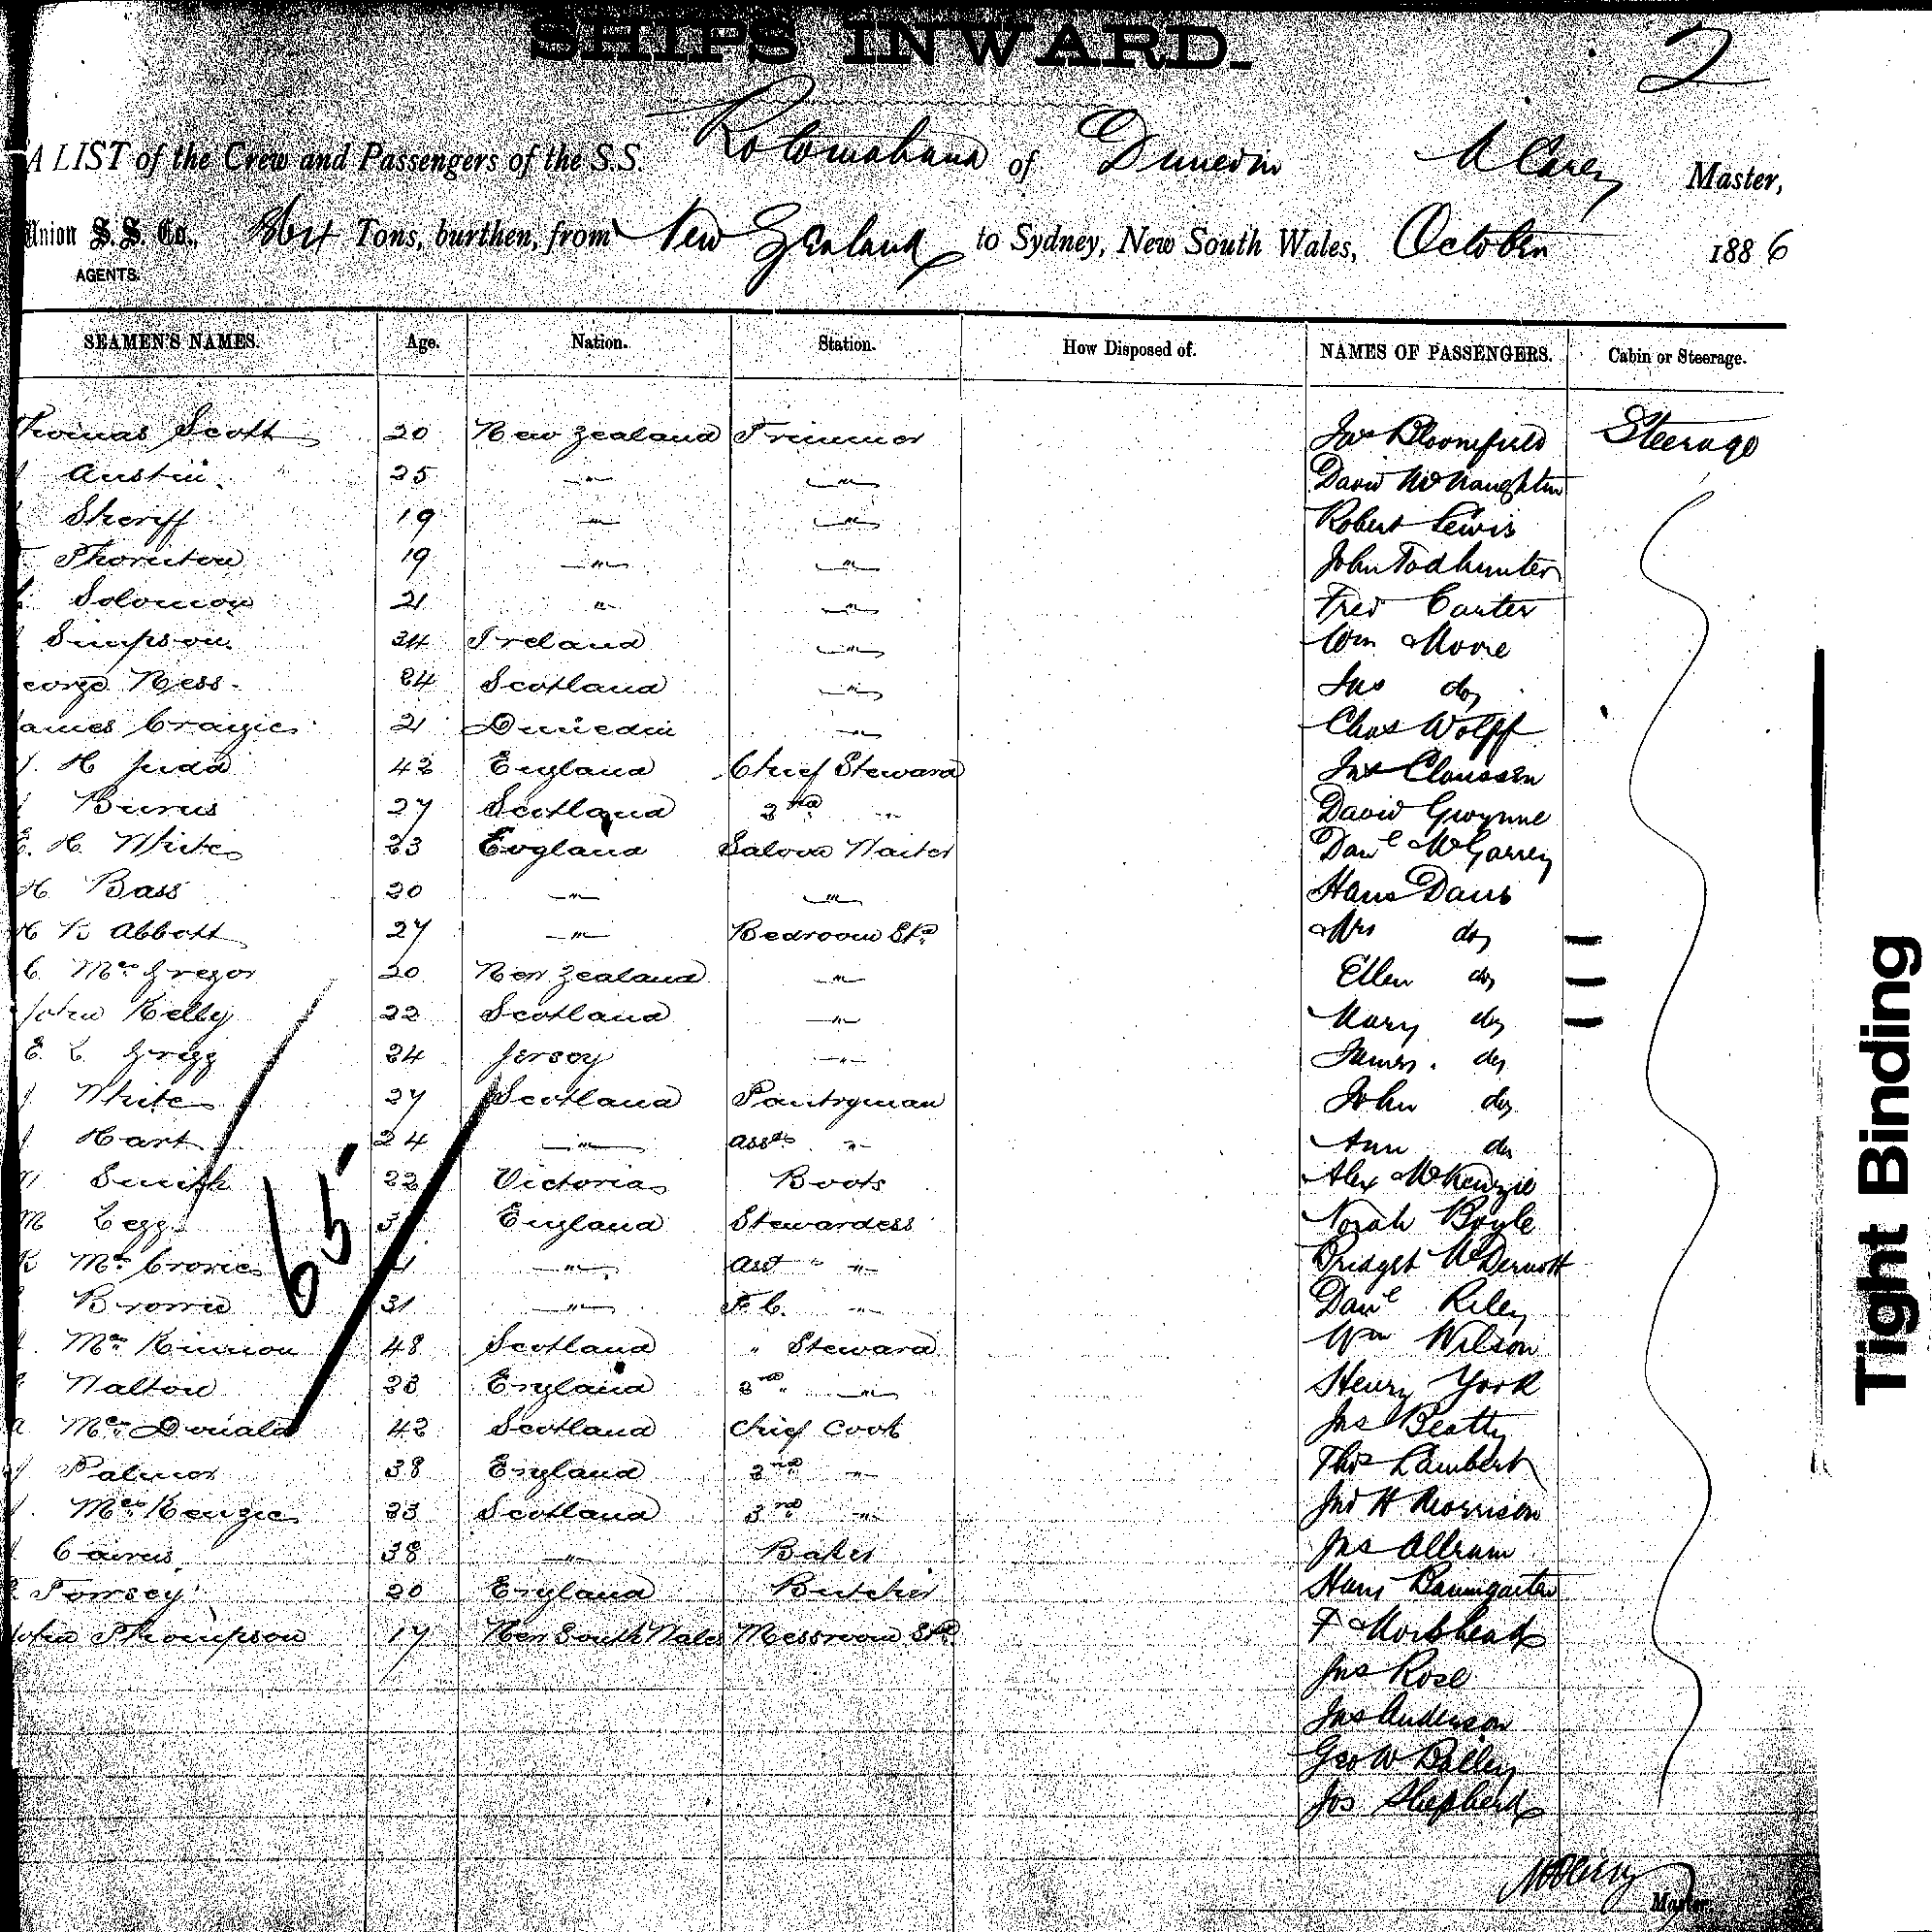 SHIPS INWARD.
2
A LIST of the Crew and Passengers of the S.S. Rotomahana of Dunedin Carey Master,
Union S.S. Co., Tons, burthen, from New Zealand to Sydney, New South Wales, October 1886
AGENTS.
SEAMEN'S NAMES. Age. Nation. Station. How Disposed of. NAMES OF PASSENGERS. Cabin or Steerage.
Thomas Scott 20 New Zealand Trimmer Jas Bloomfield Steerage
Austin 25 " " David McNaughton
Sheriff 19 " " Robert Lewis
Thornton 19 " " John Todhunter
Solomon 21 " " Fred Carter
Simpson 24 Ireland " Wm Moore
George Ness 24 Scotland " Jas do
James Craigie 21 Dunedin " Chas Wolff
H Judd 42 England Chief Steward Claussen
Burns 27 Scotland 2nd " David Gwynne
E. H. White 23 England Saloon Waiter Danl McGarrey
H Bass 20 " " Hans Daus
H R Abbott 27 " Bedroom Std Mrs do
C. McGregor 20 New Zealand " Ellen do
John Kelly 22 Scotland " Mary do
E. C. Grigg 24 Jersey " James do
J White 27 Scotland Pantryman John do
J Hart 24 " Asst " Ann do
Smith 22 Victoria Boots Alex McKenzie
M Legg England Stewardess Norah Boyle
McCrorie " Asst " " Bridget McDermott
Brown 31 " F.C. " Danl Riley
McKinnon 48 Scotland " Steward Wm Wilson
Walton 23 England 2nd " " Henry York
McDonald 42 Scotland Chief Cook Jas Beatty
Palmer 38 England 2nd " Thos Lambert
McKenzie 23 Scotland 3rd " Jno H Morrison
Cairns 38 " Baker Jas Allram
Tomsey 20 England Butcher Hans Baumgarten
John Thompson 17 New South Wales Messroom Std F Morshead
Jas Rose
Jas Anderson
Geo W Balley
Jos Shepherd
65
Master.
Tight Binding